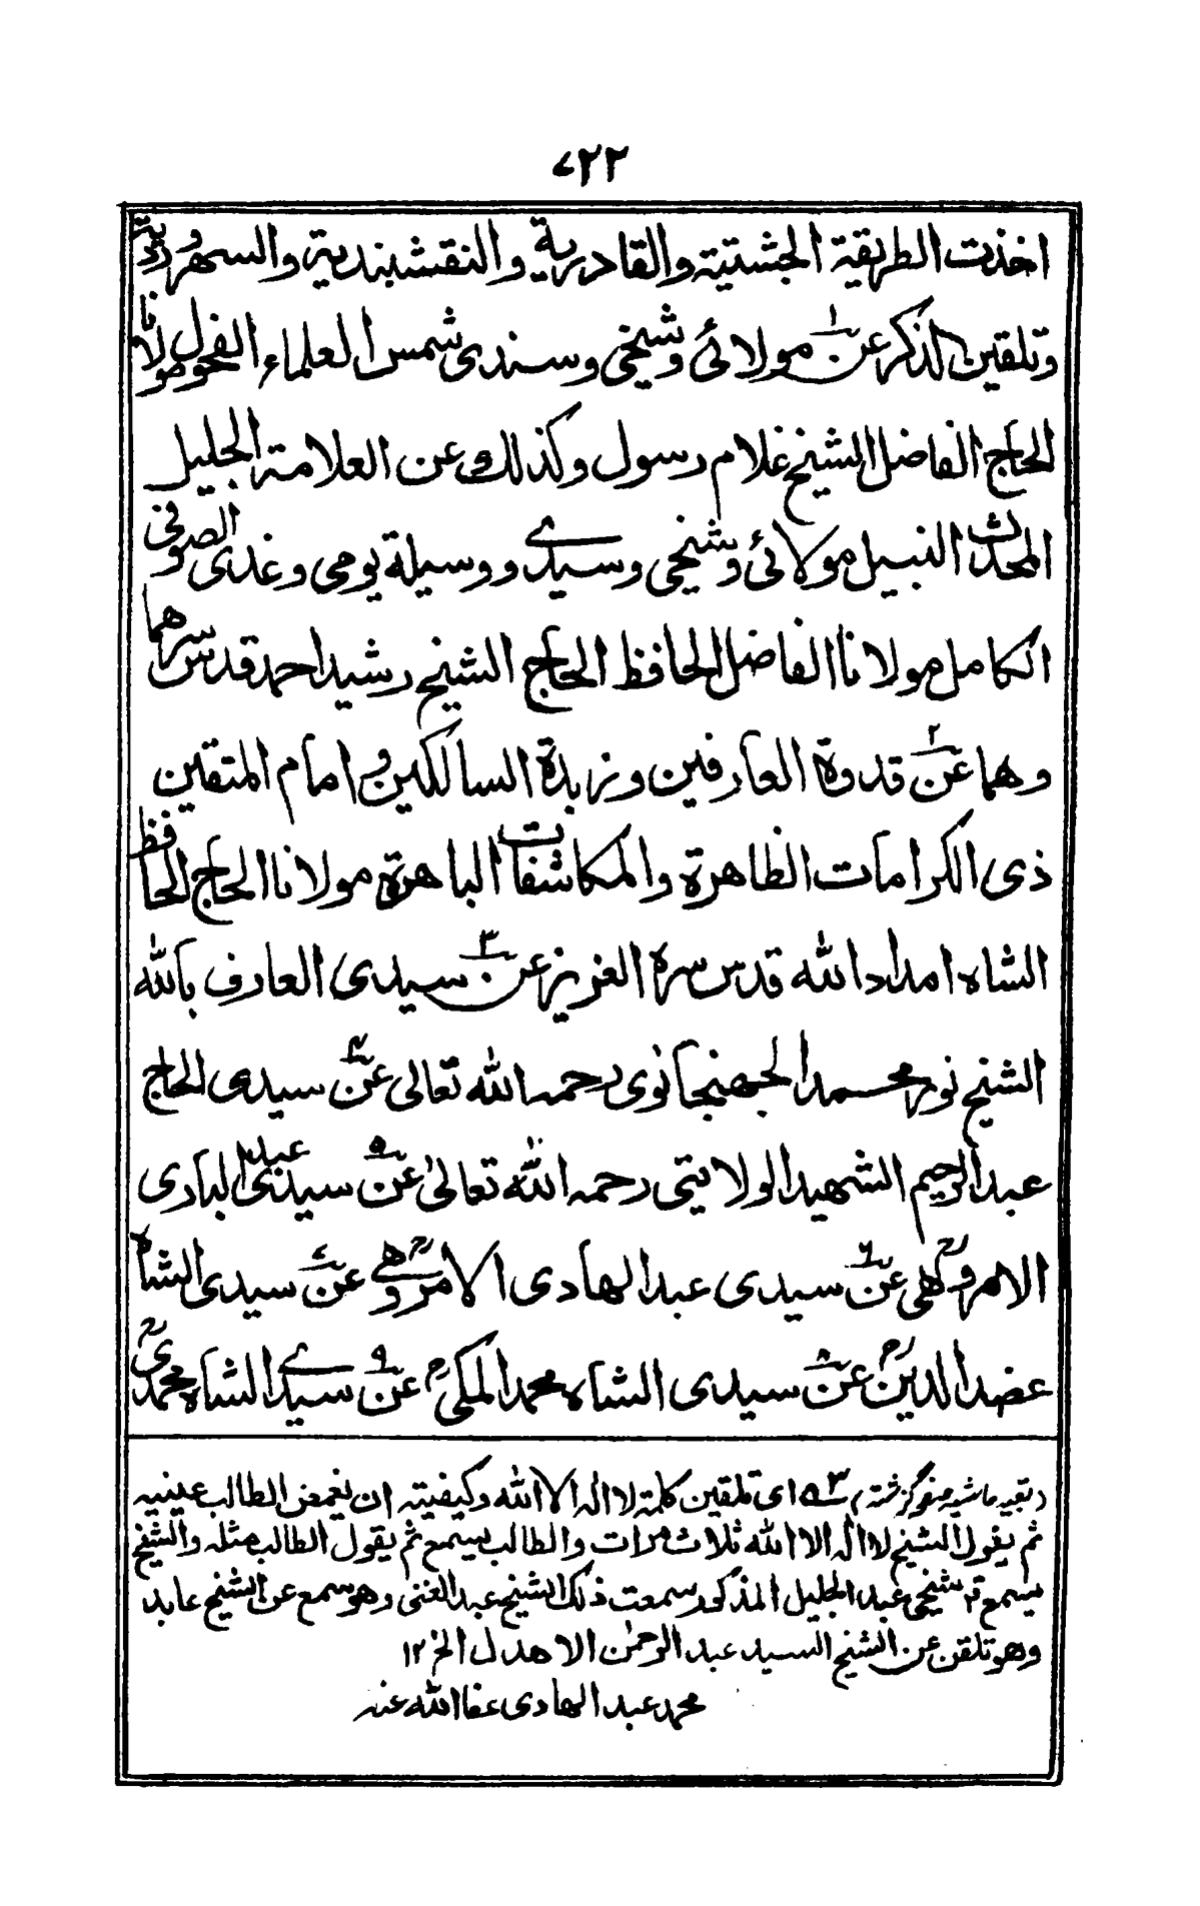 ٧٢٢
اخذت الطريقة الجشتية والقادرية والنقشبندية والسهروردية
وتلقين الذكر عن١ مولائي وشيخي وسندي شمس العلماء الفحول مولانا
الحاج الفاضل الشيخ غلام رسول وكذلك عن العلامة الجليل
المحدث النبيل مولائي وشيخي وسيدے ووسيلة يومي وغدي الصوفي
الكامل مولانا الفاضل الحافظ الحاج الشيخ رشيد احمد قدس سرهما
وهما عن٢ قدوة العارفين وزبدة السالكين وامام المتقين
ذي الكرامات الظاهرة والمكاشفات الباهرة مولانا الحاج الحافظ
الشاه امداد الله قدس سره العزيز عن٣ سيدي العارف بالله
الشيخ نور محمد الجهنجانوي رحمه الله تعالى عن٤ سيدي الحاج
عبد الرحيم الشهيد الولايتي رحمه الله تعالىٰ عن٥ سيدي عبد الباري
الامروهي رح عن٦ سيدي عبد الهادي الامروهے رح عن٧ سيدي الشاه
عضد الدين رح عن٨ سيدي الشاه محمد المكي رح عن٩ سيدے الشاه محمدي رح
(بقيه حاشيه صفو گزشته) م٣ ٥ اى تلقين كلمة لا اله الا الله وكيفيته ان يغمض الطالب عينيه
ثم يقول الشيخ لا اله الا الله ثلاث مرات والطالب يسمع ثم يقول الطالب مثله والشيخ
يسمع شيخي عبد الجليل المذكور سمعت ذلك الشيخ عبد الغني وهو سمع عن الشيخ عابد
وهو تلقن عن الشيخ السيد عبد الرحمٰن الاهدل الخ ١٢
محمد عبد الهادي عفا الله عنه